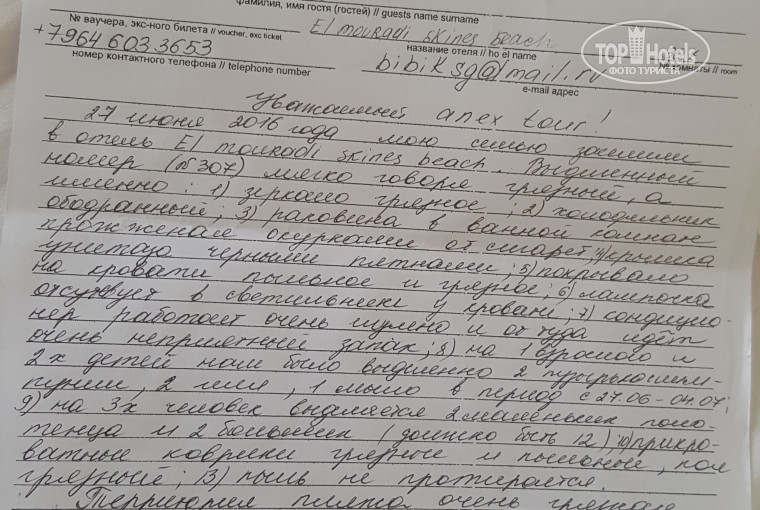 фамилия, имя гостя (гостей) // guests name surname
El mouradi skines beach
№ ваучера, экс-ного билета // voucher, exc ticket
название отеля // ho el name
№ комнаты // room
TOP Hotels
ФОТО ТУРИСТА
+7964 603 3653
bibiksg@mail.ru
номер контактного телефона // telephone number
e-mail адрес
Уважаемый anex tour!
27 июня 2016 года мою семью заселили
в отель El mouradi skines beach. Выделенный
номер (№307) мягко говоря грязный, а
именно: 1) зеркало грязное; 2) холодильник
ободранный; 3) раковина в ванной комнате
прожженая окурками от сигарет; 4) крышка
унитаза черными пятнами; 5) покрывало
на кровати пыльное и грязное; 6) лампочка
отсутвует в светильнике у кровати; 7) кондицио-
нер работает очень шумно и от туда идёт
очень неприятный запах; 8) на 1 взрослого и
2х детей нам было выделенно 2 пузырька шам-
пуни, 2 геля, 1 мыло в период с 27.06-04.07;
9) на 3х человек выдляется 2 маленьких поло-
тенца и 2 больших (должно быть 12); 10) прикро-
ватные коврики грязные и пыльные, пол
грязный; 13) пыль не протирается.
Территория пляжа очень грязная